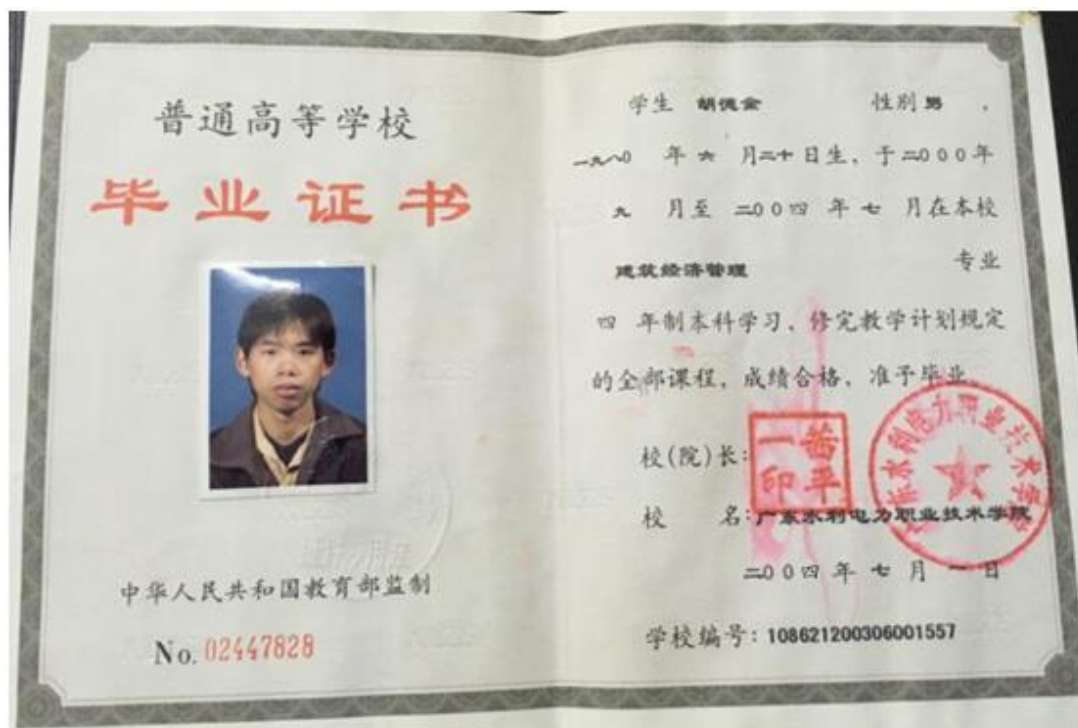 普通高等学校
毕业证书
中华人民共和国教育部监制
No. 02447828
学生 胡德金 性别 男 ,
一九八0 年 六 月二十日生, 于二000年
九 月至 二00四 年 七 月在本校
建筑经济管理 专业
四 年制本科学习, 修完教学计划规定
的全部课程, 成绩合格, 准予毕业.
校(院)长:
一 茜
印 平
校 名: 广东水利电力职业技术学院
二00四 年 七 月 一 日
学校编号: 108621200306001557
广东水利电力职业技术学院